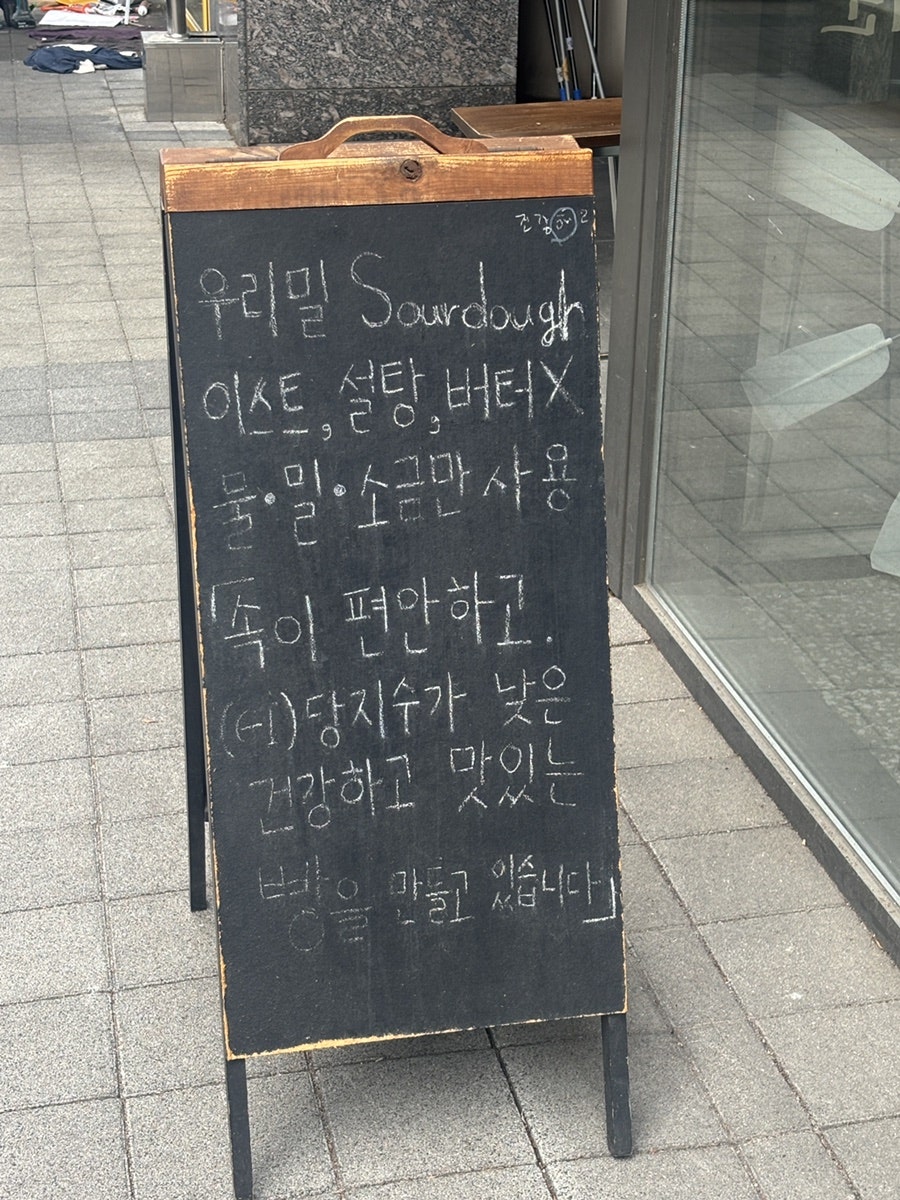 우리밀 Sourdough
이스트, 설탕, 버터X
물·밀·소금만 사용
「속이 편안하고.
당지수가 낮은
건강하고 맛있는
빵을 만들고 있습니다」